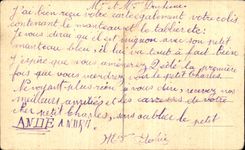 Mr et Me Duchesne
J'ai bien reçu votre carte également votre colis
contenant le manteau et le tablier etc:
Je vous dirai qu'il est mignon avec son petit
manteau bleu, il lui va tout à fait bien
J'espère que vous amènerez l'été la première
fois que vous viendrez voir le petit Charles.
Ne voyant plus rien à vous dire, recevez nos
meilleurs amitiés et les caresses de votre
cher petit Charles, sans oublier le petit
ANDÉ ANDRÉ
Me